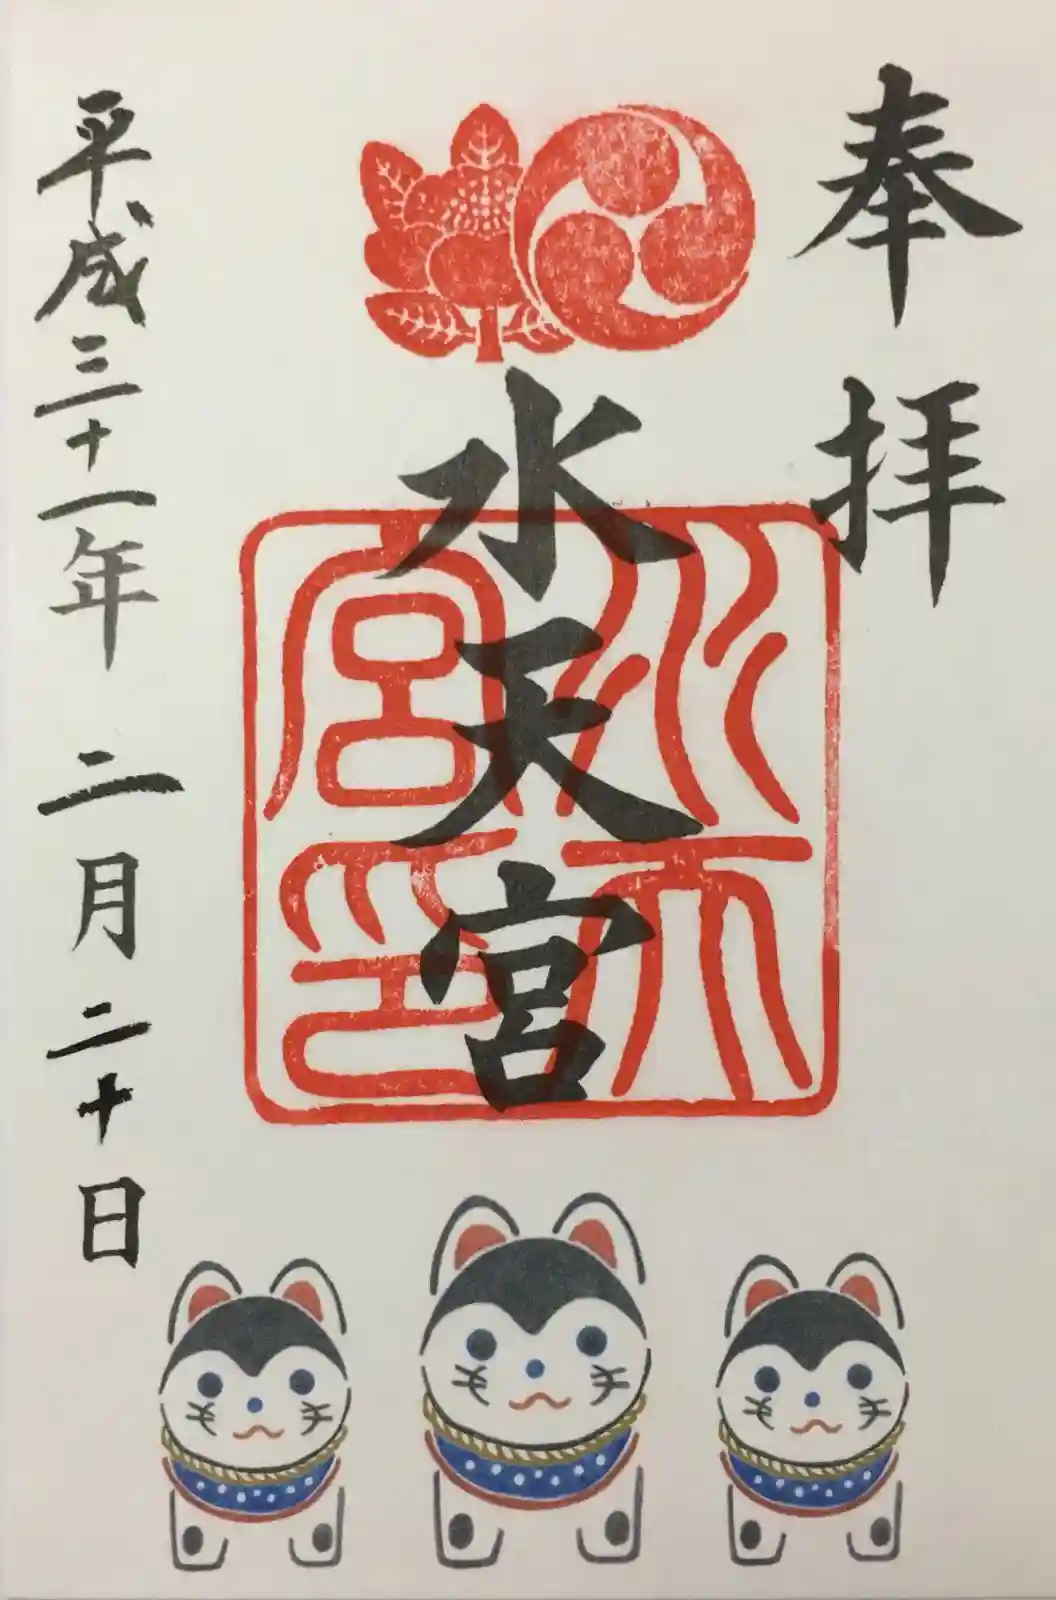 奉拝
水天宮
水天宮印
平成三十一年 二月 二十日